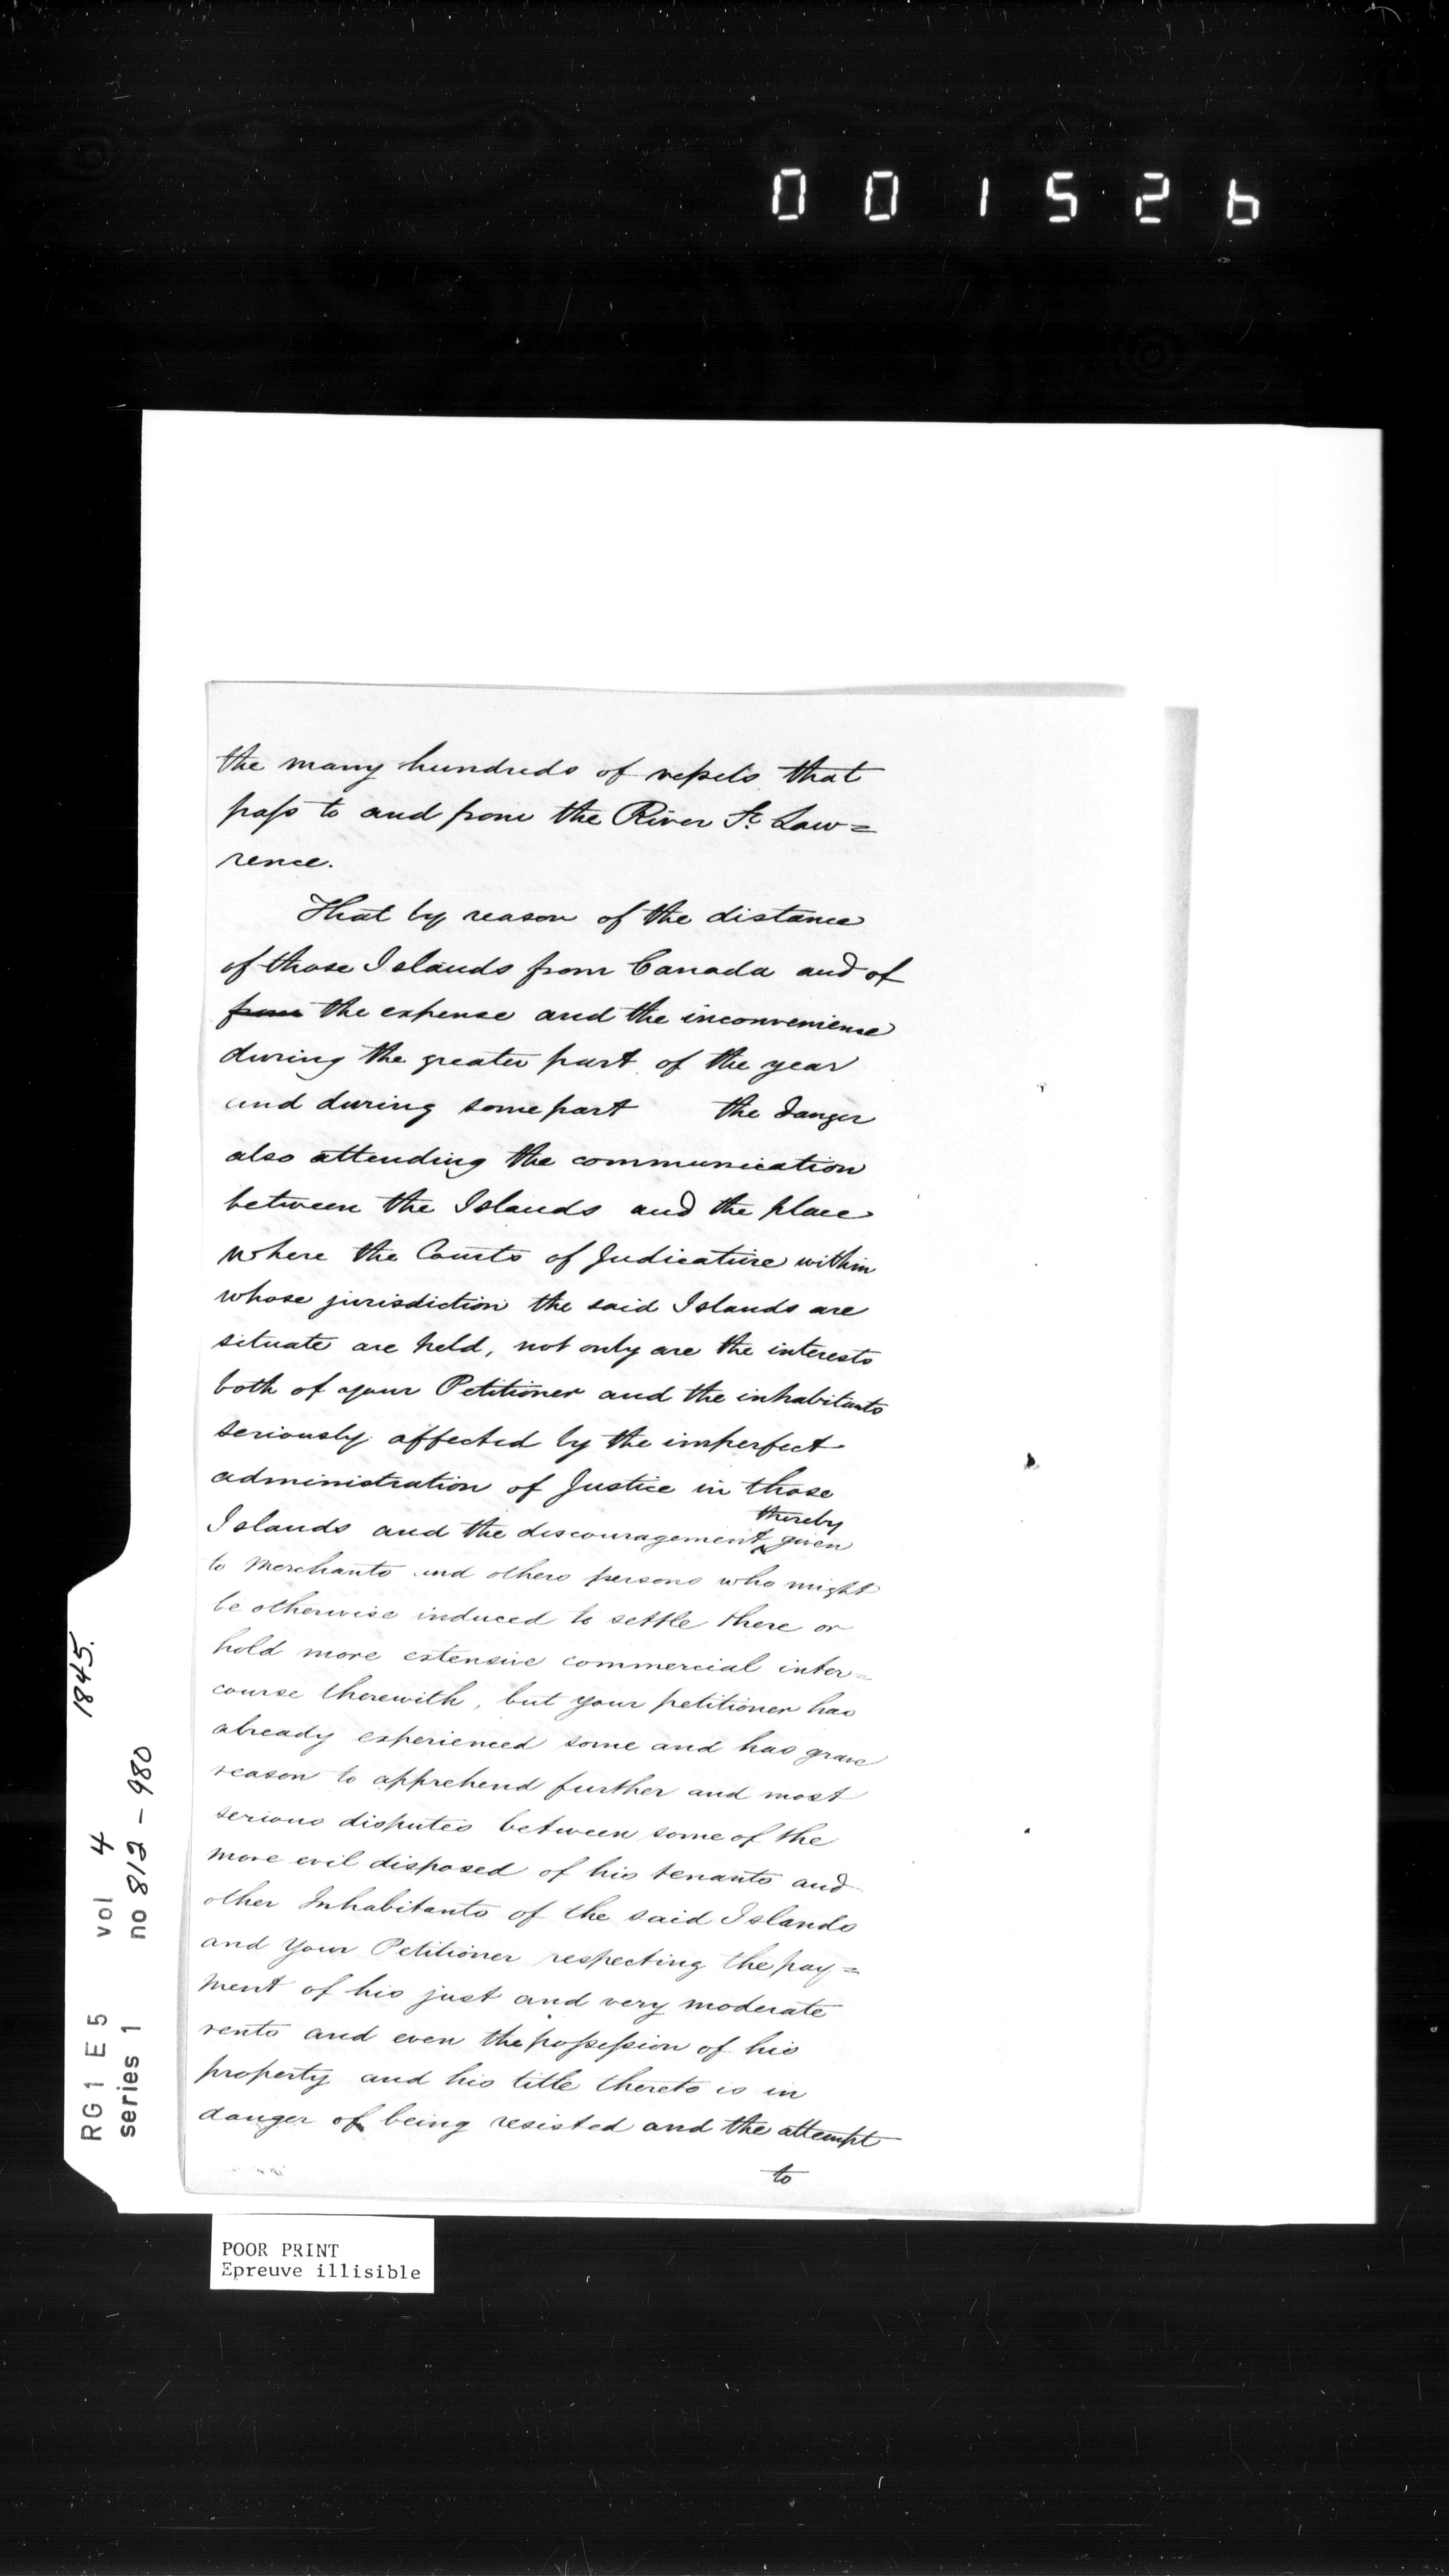 001526
the many hundreds of vessels that
pass to and from the River St. Law=
rence.
That by reason of the distance
of those Islands from Canada and of
from the expense and the inconvenience
during the greater part of the year
and during some part the danger
also attending the communication
between the Islands and the place
where the Courts of Judicature within
whose jurisdiction the said Islands are
situate are held, not only are the interests
both of your Petitioner and the inhabitants
seriously affected by the imperfect
administration of Justice in those
thereby
Islands and the discouragement given
to Merchants and others persons who might
be otherwise induced to settle there or
hold more extensive commercial inter=
course therewith, but your petitioner has
already experienced some and has grave
reason to apprehend further and most
serious disputes between some of the
more evil disposed of his tenants and
other Inhabitants of the said Islands
and Your Petitioner respecting the pay=
ment of his just and very moderate
rents and even the possession of his
property and his title thereto is in
danger of being resisted and the attempt
to
RG 1 E 5 vol 4 1845.
series 1 no 812-980
POOR PRINT
Epreuve illisible